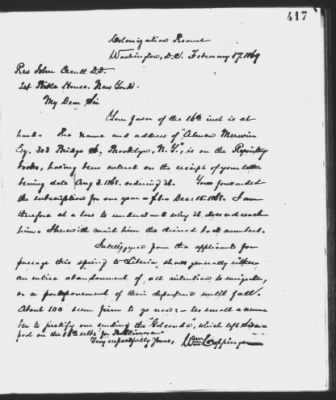 417
Colonization Rooms
Washington, D.C. February 17. 1869
Rev John Orcutt D.D.
Bible House. New York.
My Dear Sir
Your favor of the 16th inst is at
hand. The name and address of "Alman Merwin
Esq. 303 Bridge St, Brooklyn, N.Y.", is on the Repository
books, having been entered on the receipt of your letter
bearing date Aug 3. 1868. ordering it. You forwarded
the subscription for one year on Dec 15. 1868. I am
therefore at a loss to understand why it does not reach
him. I herewith mail him the desired back numbers.
Intelligence from the applicants for
passage this spring to Liberia shows generally either
an entire abandonment of all intention to emigrate,
or a postponement of their departure until fall.
About 100 seem firm to go now: too small a num
ber to justify our sending the "Golconda", which left
on the 18th ulto. for Baltimore
Very respectfully yours,
Wm Coppinger